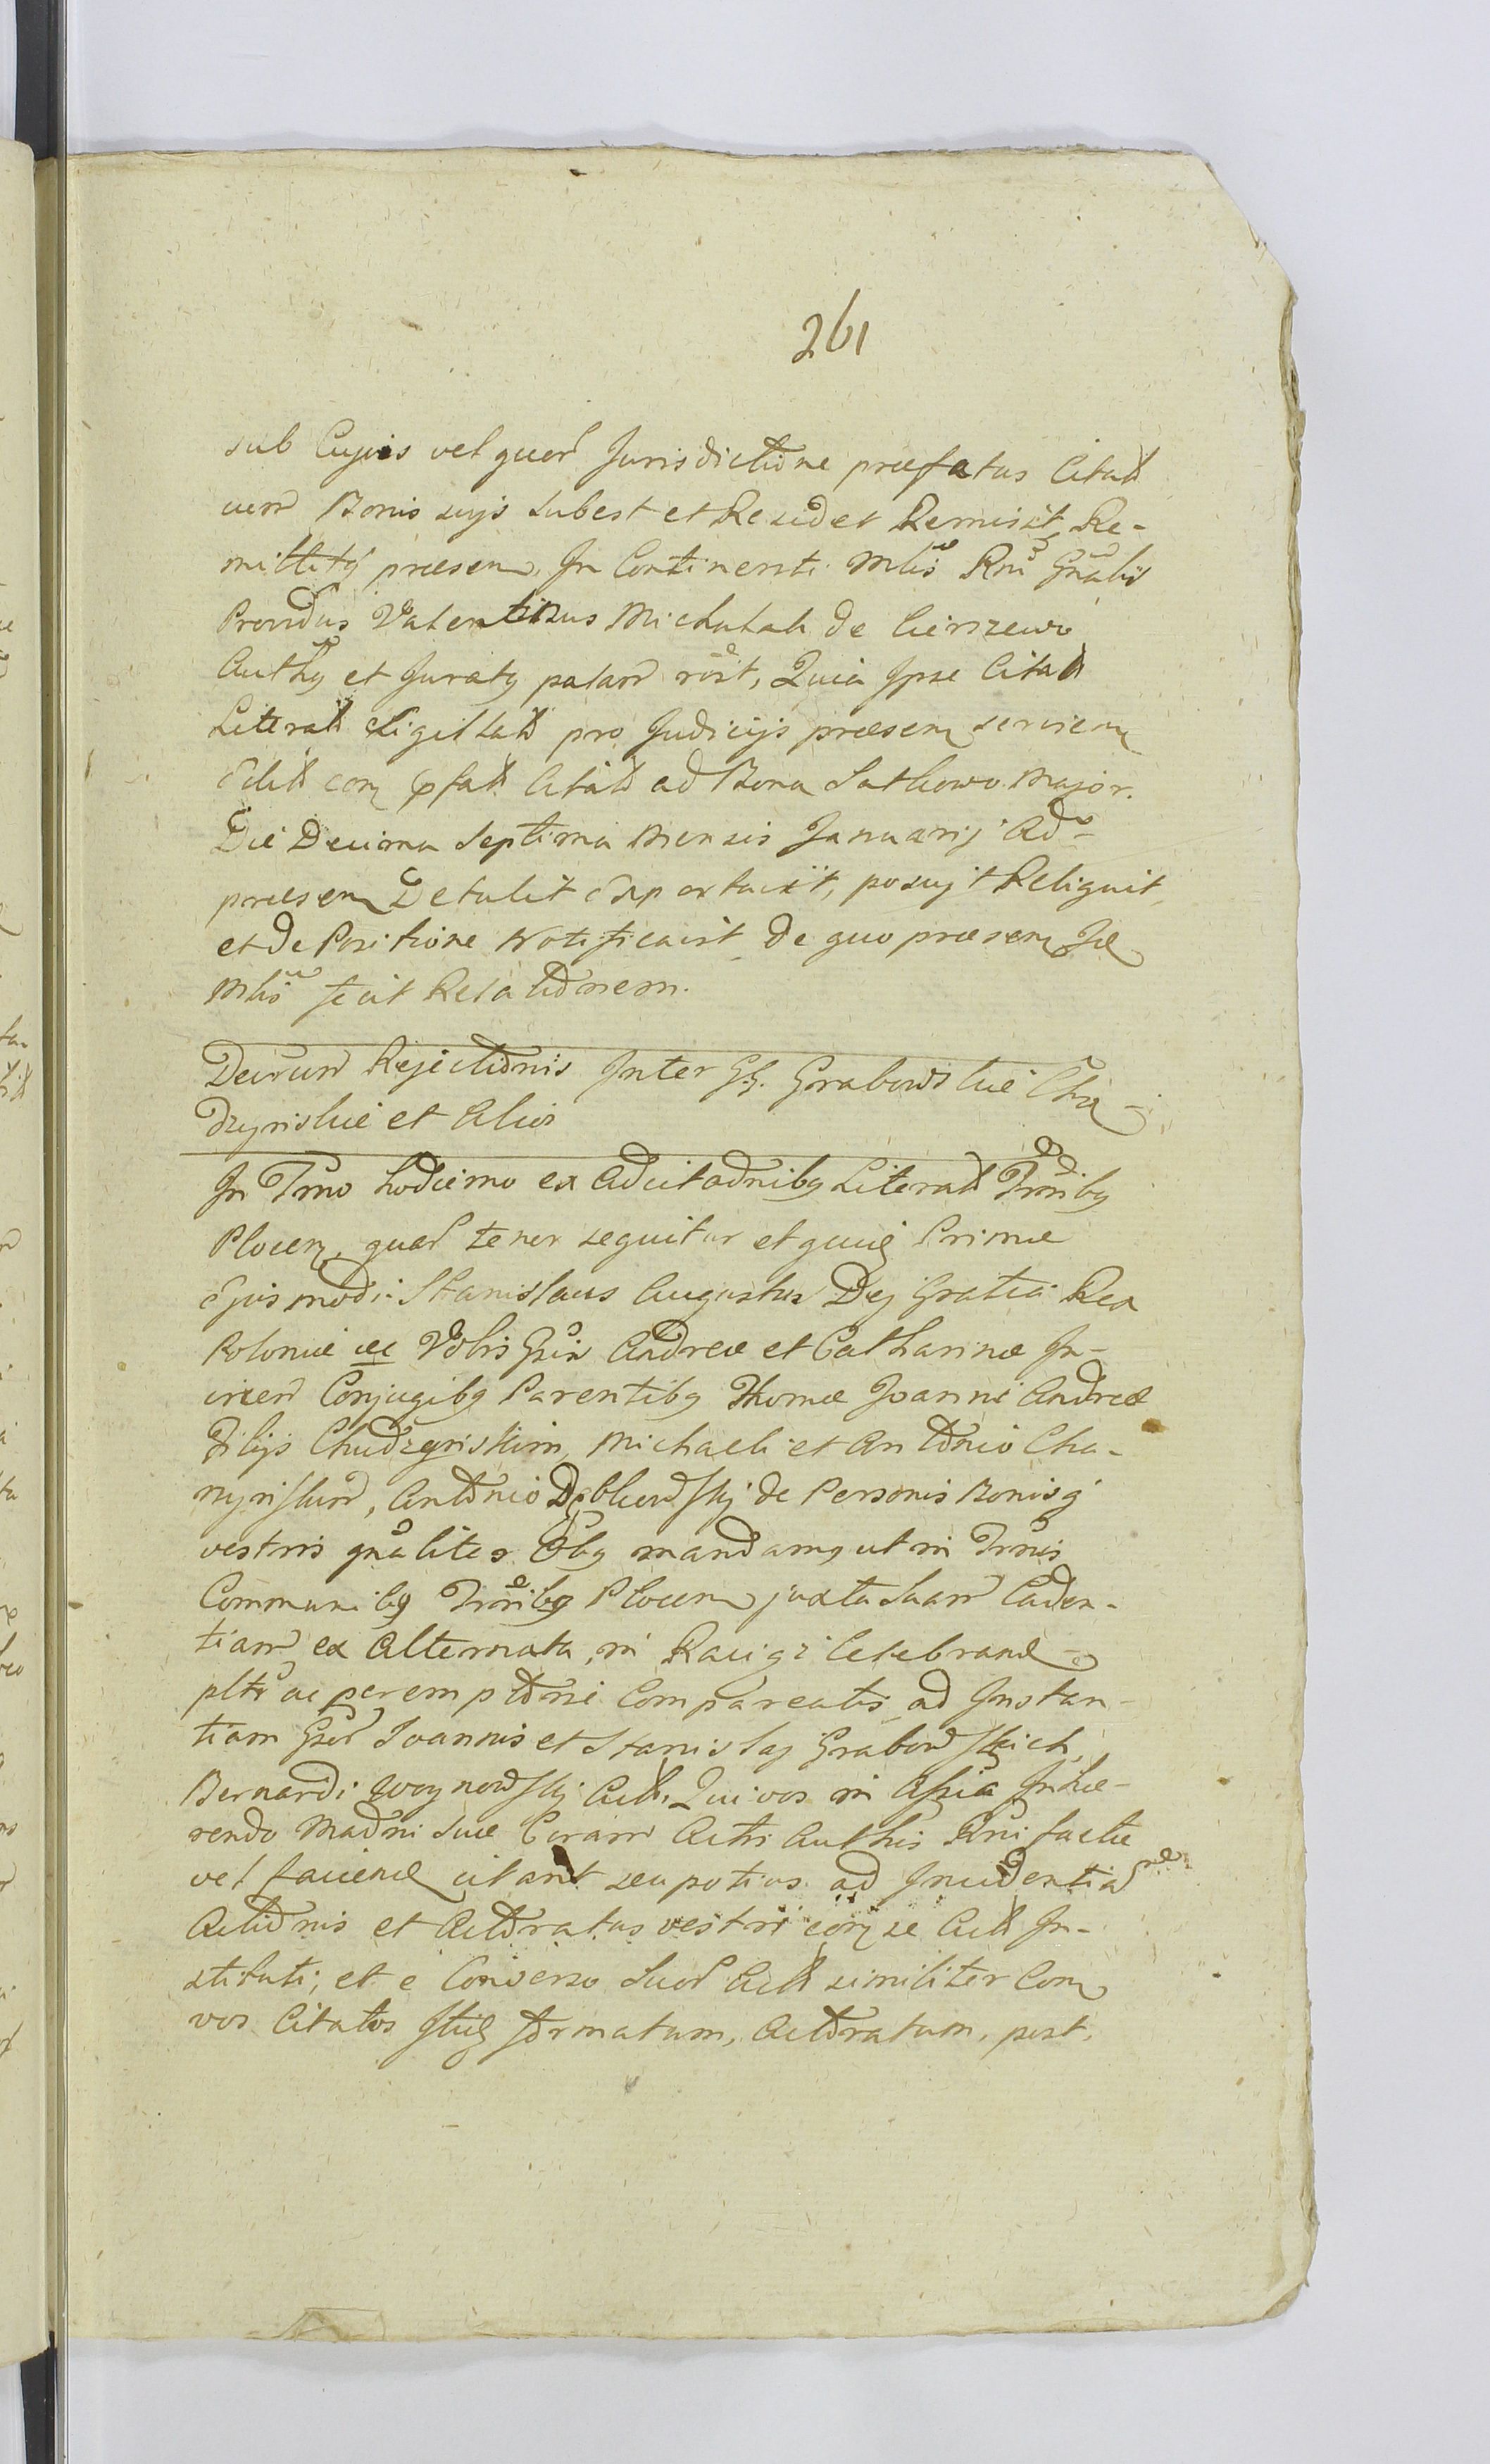 261
sub Cujus vel quor Jurisdictione præfatus Citat
cum Bonis suijs subest et Residet Remisit, Re-
mittitq præsen. In Continenti Mlis Rni Gnalis
Providus Valentinus Michalak de Cierszewo
Authq et Juratq palam rost, Quia Ipse Citat
Literat Sigillat pro Judicijs præsen servien
Edit con pfat Citat ad Bona Sathowo Major.
Die Decima Septima Mensis Januarij Ad
præsen Detulit Exportavit, posujt Reliquit
et de Positione Notificavit de quo præsen
Mlis fecit Relationem.
Decrum Rejectionis Inter GG. Grabowskie Chu-
dzynskie et Alios
In Tmo hodierno ex Adcitaonibq Literat Trribq
Plocen, quar tenor sequitur et quid Primæ
Ejusmodi. Stanislaus Augustus Dej Gratia Rex
Poloniæ etc Vobis Gsis Andreæ et Catharinæ In-
vicem Conjugibq Parentibq Thomæ Joanni Andreæ
Filijs Chudzynskim, Michaeli et Antonio Cha-
nynskim, Antonio Dębkowskj de Personis Bonisq
vestris gnaliter Obq mandamq ut in Tmis
Communibq Trribq Plocen juxta suam Caden-
tiam ex Alternata in Raciąz Celebrand
pltr ac peremptorie Compareatis ad Instan-
tiam Gsor Joannis et Stanislaj Grabowskich,
Bernardi Woynowskj Act. Qui vos in Assia Inhæ-
rendo Maoni suæ Coram Actis Authis Rni factæ
vel faciend citant seu potius ad Incidentiam
Actionis et Actoratus vestri con se Act In-
stituti, et e Converso Suor Act similiter Con
vos Citatos formatum, Actoratum, post.